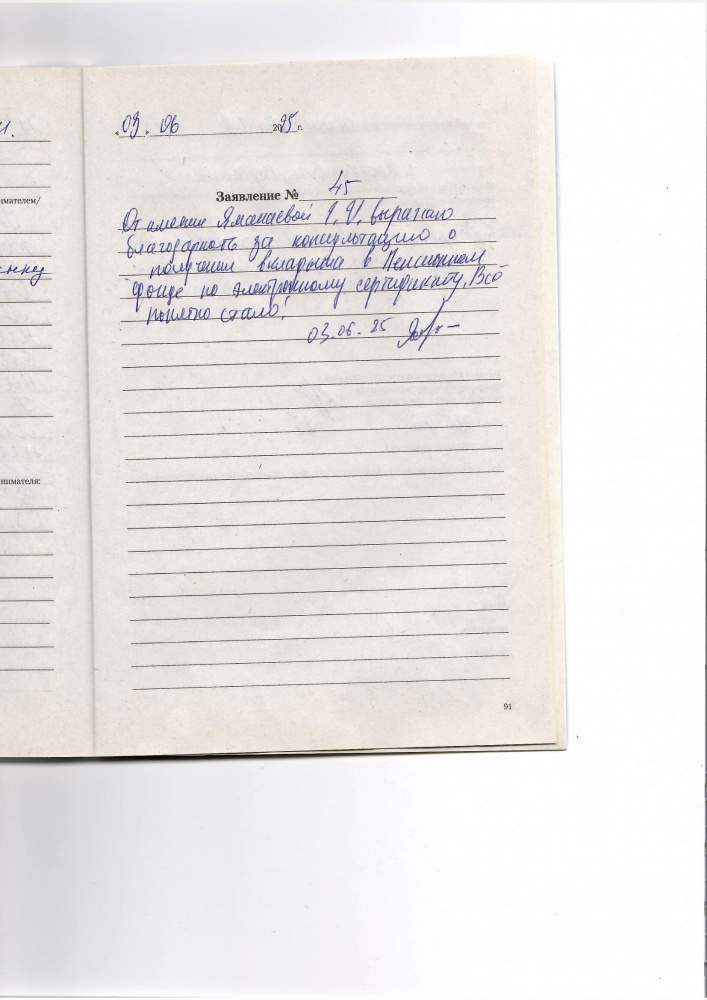 и.
нимателем/
нику
нимателя:
«03» 06 2025 г.
Заявление № 45
От имени Яманаевой І. И, выражаю
благодарность за консультацию о
получении вкладыша в Пенсионном
фонде по электронному сертификату. Всё
понятно стало!
03.06.25
91